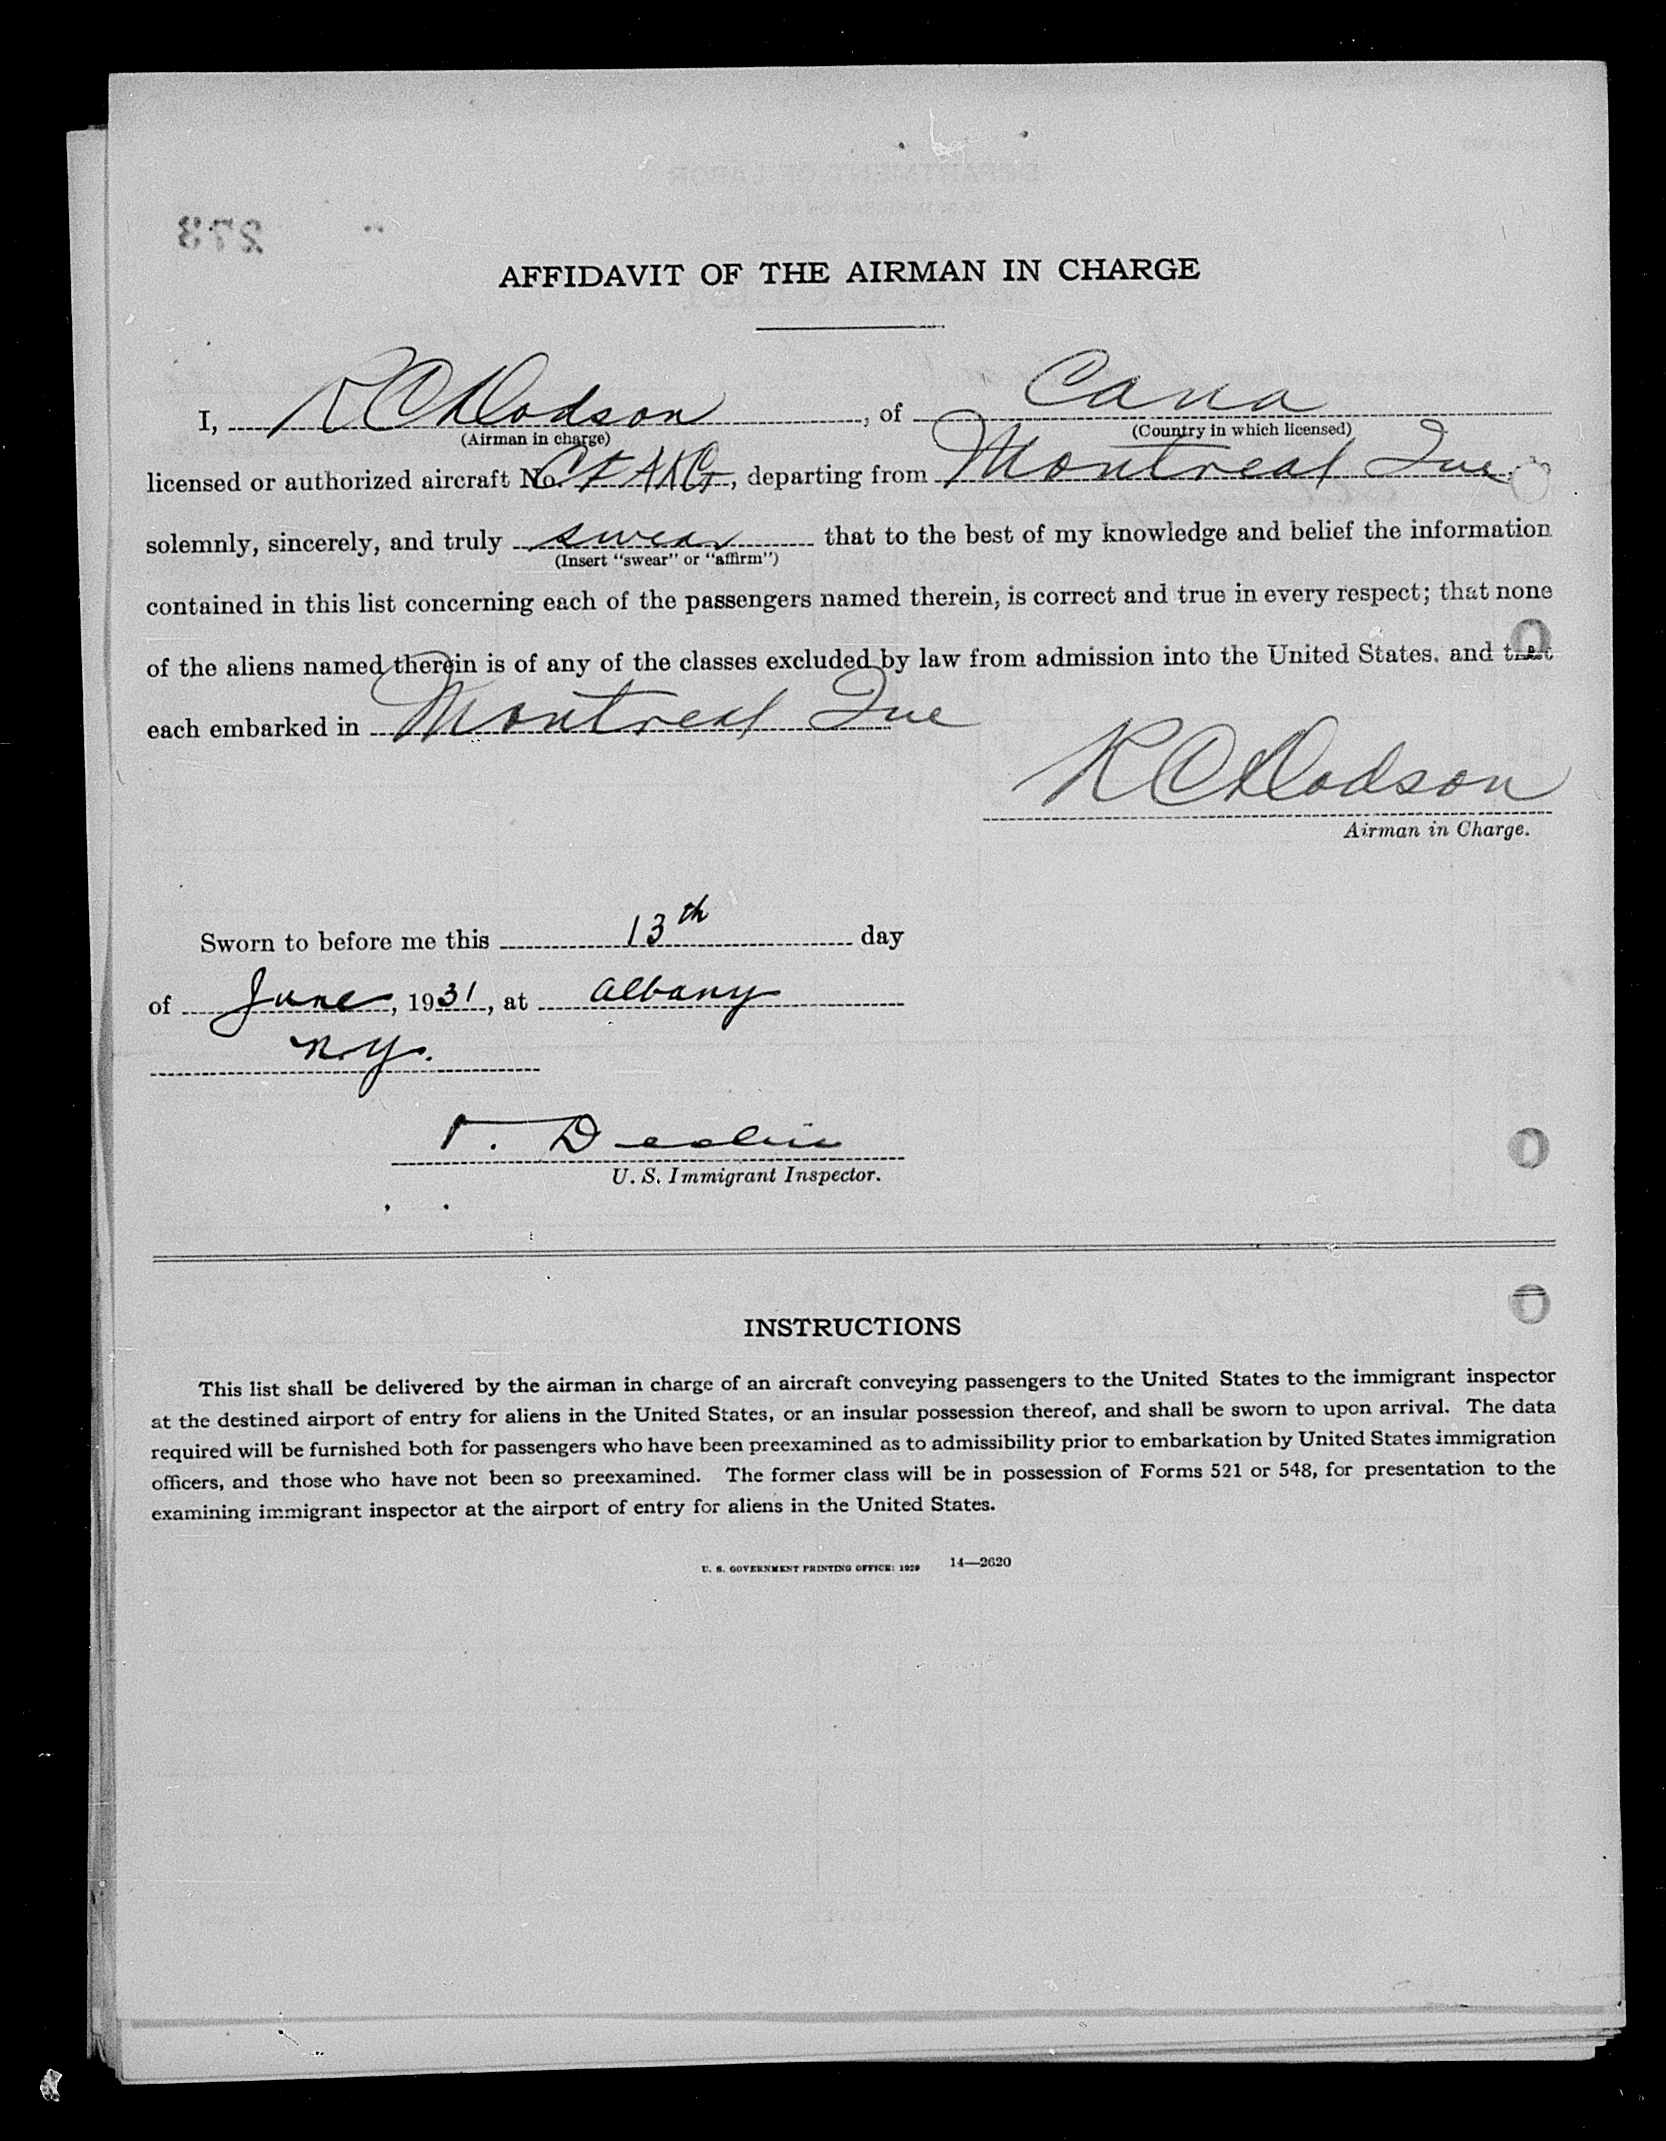 AFFIDAVIT OF THE AIRMAN IN CHARGE
I, R C Dodson, of Cana
(Airman in charge) (Country in which licensed)
licensed or authorized aircraft No. CF AKG, departing from Montreal Que
solemnly, sincerely, and truly swear that to the best of my knowledge and belief the information
(Insert "swear" or "affirm")
contained in this list concerning each of the passengers named therein, is correct and true in every respect; that none
of the aliens named therein is of any of the classes excluded by law from admission into the United States, and that
each embarked in Montreal Que
R C Dodson
Airman in Charge.
Sworn to before me this 13th day
of June, 1931, at Albany
N.Y.
U. S. Immigrant Inspector.
INSTRUCTIONS
This list shall be delivered by the airman in charge of an aircraft conveying passengers to the United States to the immigrant inspector
at the destined airport of entry for aliens in the United States, or an insular possession thereof, and shall be sworn to upon arrival. The data
required will be furnished both for passengers who have been preexamined as to admissibility prior to embarkation by United States immigration
officers, and those who have not been so preexamined. The former class will be in possession of Forms 521 or 548, for presentation to the
examining immigrant inspector at the airport of entry for aliens in the United States.
U. S. GOVERNMENT PRINTING OFFICE: 1929 14—2620